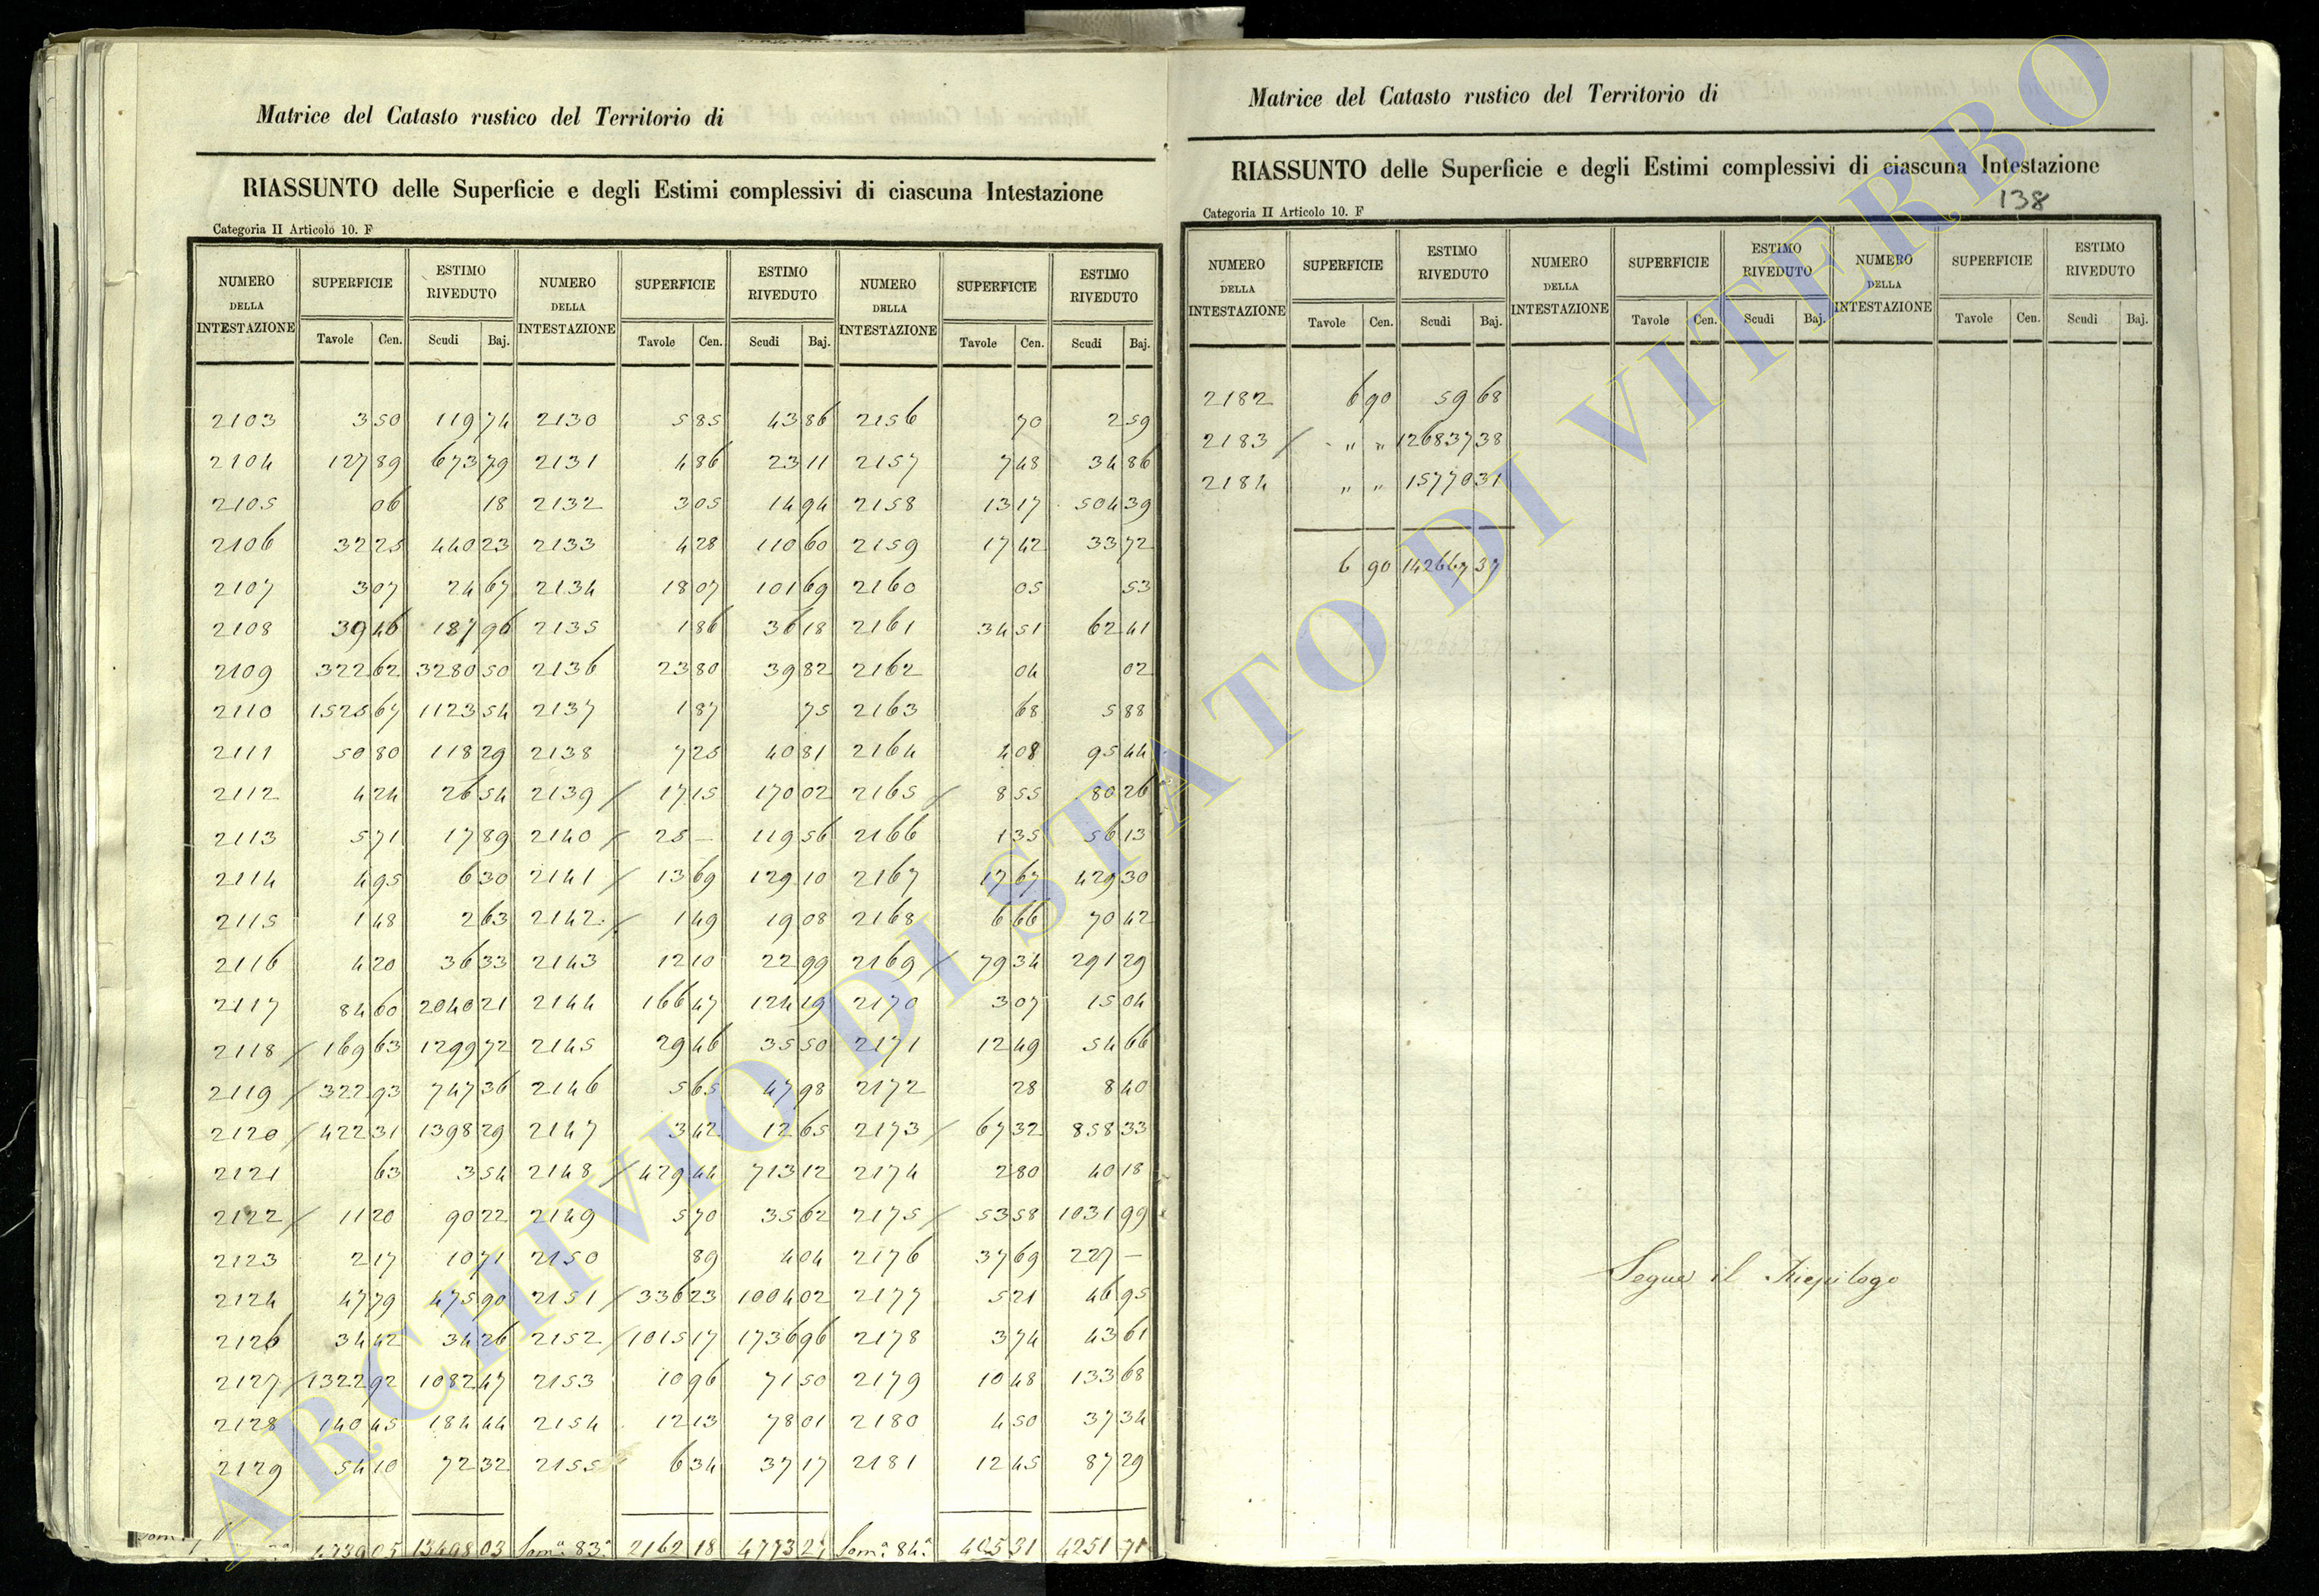 Matrice del Catasto rustico del Territorio di
RIASSUNTO delle Superficie e degli Estimi complessivi di ciascuna Intestazione
Categoria II Articolo 10. F
NUMERO DELLA INTESTAZIONE SUPERFICIE ESTIMO RIVEDUTO NUMERO DELLA INTESTAZIONE SUPERFICIE ESTIMO RIVEDUTO NUMERO DELLA INTESTAZIONE SUPERFICIE ESTIMO RIVEDUTO
Tavole Cen. Scudi Baj. Tavole Cen. Scudi Baj. Tavole Cen. Scudi Baj.
2103 3 50 119 74 2130 5 85 43 86 2156 70 2 59
2104 127 89 673 79 2131 4 86 23 11 2157 7 48 34 86
2105 06 18 2132 3 05 14 94 2158 13 17 504 39
2106 32 25 440 23 2133 4 28 110 60 2159 17 42 33 72
2107 3 07 24 67 2134 18 07 101 69 2160 05 53
2108 39 46 187 96 2135 1 86 36 18 2161 34 51 62 41
2109 322 62 3280 50 2136 23 80 39 82 2162 04 02
2110 1525 67 1123 54 2137 1 87 75 2163 68 5 88
2111 50 80 118 29 2138 7 25 40 81 2164 4 08 95 44
2112 4 24 26 54 2139 / 17 15 170 02 2165 / 8 55 80 26
2113 5 71 17 89 2140 / 25 — 119 56 2166 1 35 56 13
2114 4 95 6 30 2141 / 13 69 129 10 2167 17 67 429 30
2115 1 48 2 63 2142 / 1 49 19 08 2168 6 66 70 42
2116 4 20 36 33 2143 12 10 22 99 2169 / 79 34 291 29
2117 84 60 2040 21 2144 166 47 124 19 2170 3 07 15 04
2118 / 169 63 1299 72 2145 29 46 35 50 2171 12 49 54 66
2119 / 322 93 747 36 2146 5 65 47 98 2172 28 8 40
2120 / 422 31 1398 29 2147 3 42 12 65 2173 / 67 32 858 33
2121 63 3 54 2148 / 429 44 713 12 2174 2 80 40 18
2122 / 11 20 90 22 2149 5 70 35 62 2175 / 53 58 1031 99
2123 2 17 10 71 2150 89 4 04 2176 37 69 227 —
2124 47 79 475 90 2151 / 336 23 1004 02 2177 5 21 46 95
2126 34 42 34 26 2152 / 1015 17 1736 96 2178 3 74 43 61
2127 / 1322 92 1082 47 2153 10 96 71 50 2179 10 48 133 68
2128 140 45 184 44 2154 12 13 78 01 2180 4 50 37 34
2129 54 10 72 32 2155 6 34 37 17 2181 12 45 87 29
4739 05 13498 03 Som.a 83.a 2162 18 4773 27 Som.a 84.a 405 31 4251 71
Matrice del Catasto rustico del Territorio di
RIASSUNTO delle Superficie e degli Estimi complessivi di ciascuna Intestazione
138
Categoria II Articolo 10. F
NUMERO DELLA INTESTAZIONE SUPERFICIE ESTIMO RIVEDUTO NUMERO DELLA INTESTAZIONE SUPERFICIE ESTIMO RIVEDUTO NUMERO DELLA INTESTAZIONE SUPERFICIE ESTIMO RIVEDUTO
Tavole Cen. Scudi Baj. Tavole Cen. Scudi Baj. Tavole Cen. Scudi Baj.
2182 6 90 59 68
2183 / " " 126837 38
2184 " " 15770 31
6 90 142667 37
Segue il Riepilogo
ARCHIVIO DI STATO DI VITERBO